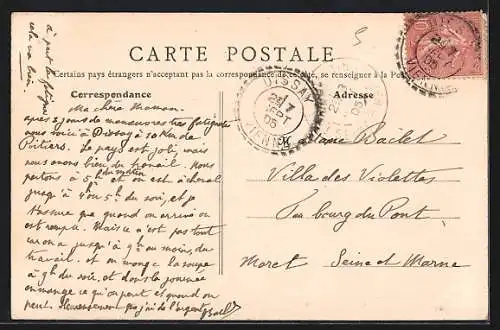 à part la fatigue
cela va bien.
CARTE POSTALE
Certains pays étrangers n'acceptant pas la correspondance de ce côté, se renseigner à la Poste
Correspondance
Adresse
Ma chère Maman.
après 2 jours de manœuvres très fatigantes
nous voici à Dissay à 20 Km de
Poitiers. Le pays est joli mais
nous avons bien du travail. Nous
partons à 5h du matin et on est à cheval
jusqu'à 4h ou 5h du soir, et je
t'assure que quand on arrive on
est rompu. Mais ce n'est pas tout
car on a jusqu'à 9h au moins, du
travail. et on mange la soupe
à 9h du soir. et dans la journée
on mange ce qu'on peut et quand on
peut. Heureusement que j'ai de l'argent
DISSAY
24 7
SEPT
05
VIENNE
Madame Bailet
Villa des Violettes
Faubourg du Pont
Moret Seine et Marne